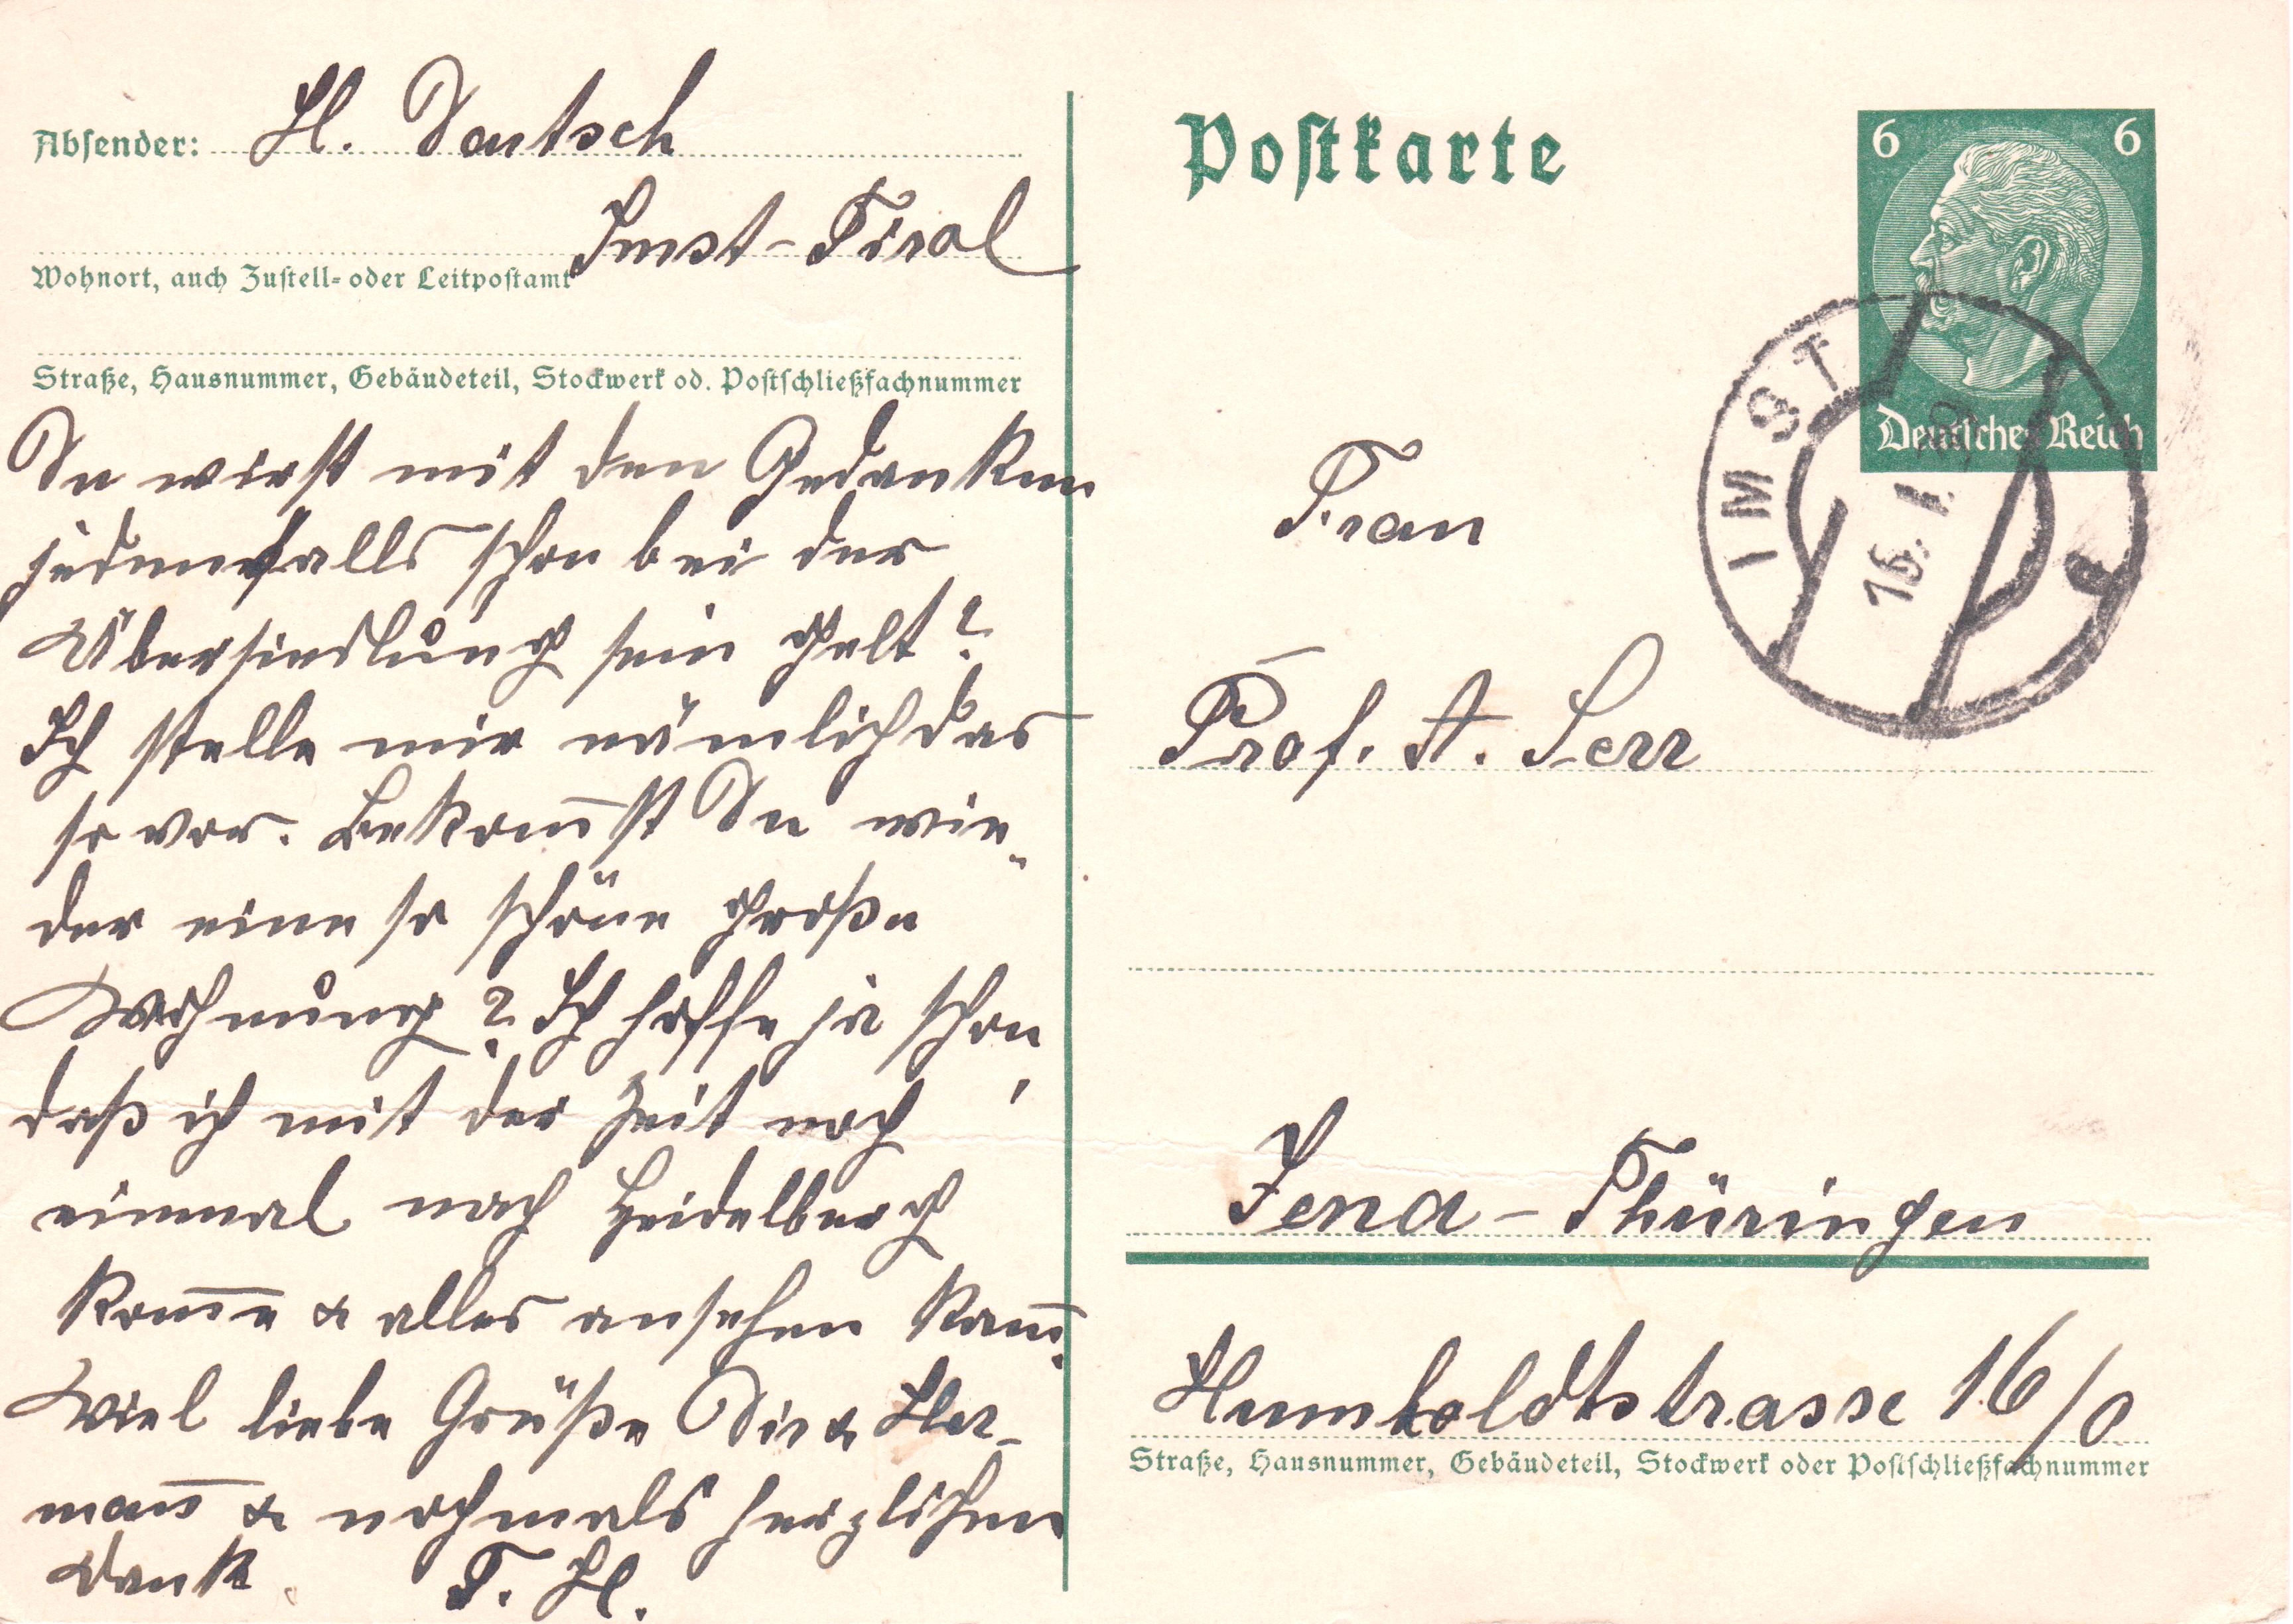 Absender: H. Dautsch
Imst-Tirol
Wohnort, auch Zustell- oder Leitpostamt
Straße, Hausnummer, Gebäudeteil, Stockwerk od. Postschließfachnummer
Du wirst mit den Gedanken
jedenfalls schon bei der
Übersiedlung sein gelt?
Ich stelle mir nämlich das
so vor. Bekom̅st Du wie-
der eine so schöne große
Wohnung? Ich hoffe ja schon,
daß ich mit der Zeit noch
einmal nach Heidelberg
kom̅e & alles ansehen kan̅.
Viel liebe Grüße Dir & Her-
man̅ & nochmals herzlichen
Dank. T. H.
Postkarte
6 6
Deutsches Reich
IMST
16. I.
Frau
Prof. A. Serr
Jena - Thüringen
Humboldtstrasse 16/0
Straße, Hausnummer, Gebäudeteil, Stockwerk oder Postschließfachnummer